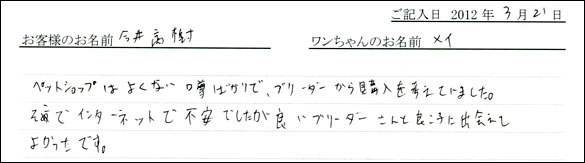 ご記入日 2012年 3月21日
お客様のお名前 今井 高樹
ワンちゃんのお名前 メイ
ペットショップはよくない噂ばかりで、ブリーダーから購入を考えていました。
でインターネットで不安でしたが良いブリーダーさんと良い子に出会えて
よかったです。